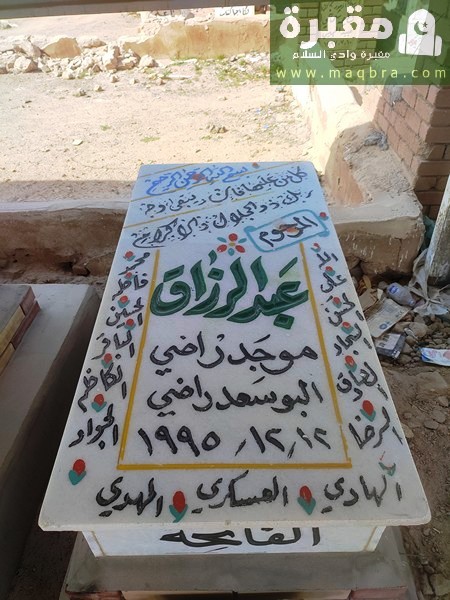 مقبرة
مقبرة وادي السلام
www.maqbra.com
بسم الله الرحمن الرحيم
كل من عليها فان ويبقى وجه
ربك ذو الجلال والاكرام
المرحوم
عبد الرزاق
موجد راضي
البوسعد راضي
١٩٩٥ .١٢.١٢
الله
علي
الحسن
السجاد
الصادق
الرضا
الهادي
محمد
فاطمة
الحسين
الباقر
الكاظم
الجواد
العسكري
المهدي
الفاتحة